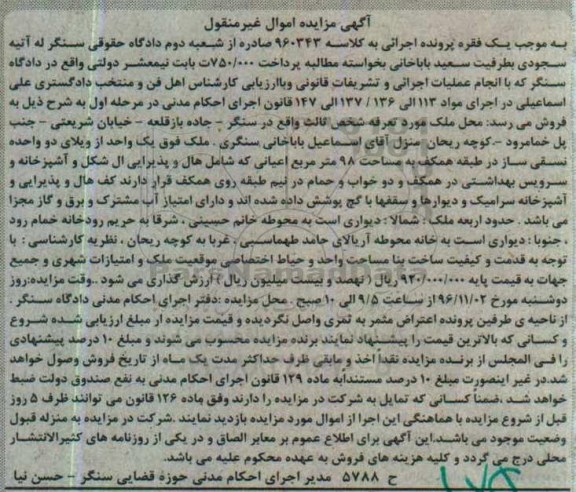 آگهی مزایده اموال غیرمنقول
به موجب یک فقره پرونده اجرائی به کلاسه ۹۶۰۳۴۳ صادره از شعبه دوم دادگاه حقوقی سنگر له آتیه
سجودی بطرفیت سعید باباخانی بخواسته مطالبه پرداخت ۷۵۰/۰۰۰ت بابت نیمعشر دولتی واقع در دادگاه
سنگر که با انجام عملیات اجرائی و تشریفات قانونی وباارزیابی کارشناس اهل فن و منتخب دادگستری علی
اسماعیلی در اجرای مواد ۱۱۳ الی ۱۳۶ / ۱۳۷ الی ۱۴۷ قانون اجرای احکام مدنی در مرحله اول به شرح ذیل به
فروش می رسد: محل ملک مورد تعرفه شخص ثالث واقع در سنگر - جاده بازقلعه - خیابان شریعتی - جنب
پل خمامرود -.کوچه ریحان- منزل آقای اسماعیل باباخانی سنگری . ملک فوق یک واحد از ویلای دو واحده
نسقی ساز در طبقه همکف به مساحت ۹۸ متر مربع اعیانی که شامل هال و پذیرایی ال شکل و آشپزخانه و
سرویس بهداشتی در همکف و دو خواب و حمام در نیم طبقه روی همکف قرار دارند کف هال و پذیرایی و
آشپزخانه سرامیک و دیوارها و سقفها با گچ پوشش داده شده اند و دارای امتیاز آب مشترک و برق و گاز مجزا
می باشد . حدود اربعه ملک : شمالا : دیواری است به محوطه خانم حسینی ، شرقا به حریم رودخانه خمام رود
، جنوبا : دیواری است به خانه محوطه آریالای حامد طهماسبی ، غربا به کوچه ریحان . نظریه کارشناسی : با
توجه به قدمت و کیفیت ساخت بنا مساحت واحد و حیاط اختصاصی موقعیت ملک و امتیازات شهری و جمیع
جهات به قیمت پایه ۹۲۰/۰۰۰/۰۰۰ ریال ( نهصد و بیست میلیون ریال ) ارزش گذاری می شود ..وقت مزایده:روز
دوشنبه مورخ ۹۶/۱۱/۰۲ از ساعت ۹/۵ الی ۱۰ صبح . محل مزایده :دفتر اجرای احکام مدنی دادگاه سنگر .
از ناحیه ی طرفین پرونده اعتراض مثمر به ثمری واصل نگردیده و قیمت مزایده از مبلغ ارزیابی شده شروع
و کسانی که بالاترین قیمت را پیشنهاد نمایند برنده مزایده محسوب می شوند و مبلغ ۱۰ درصد پیشنهادی
را فی المجلس از برنده مزایده نقدا اخذ و مابقی ظرف حداکثر مدت یک ماه از تاریخ فروش وصول خواهد
شد.در غیر اینصورت مبلغ ۱۰ درصد مستندابه ماده ۱۲۹ قانون اجرای احکام مدنی به نفع صندوق دولت ضبط
خواهد شد .ضمنا کسانی که تمایل به شرکت در مزایده را دارند وفق ماده ۱۲۶ قانون می توانند ظرف ۵ روز
قبل از شروع مزایده با هماهنگی این اجرا از اموال مورد مزایده بازدید نمایند .شرکت در مزایده به منزله قبول
وضعیت موجود می باشد.این آگهی برای اطلاع عموم بر معابر الصاق و در یکی از روزنامه های کثیرالانتشار
محلی درج می گردد و کلیه هزینه های فروش به عهده محکوم علیه می باشد.
ح ۵۷۸۸ مدیر اجرای احکام مدنی حوزه قضایی سنگر - حسن نیا